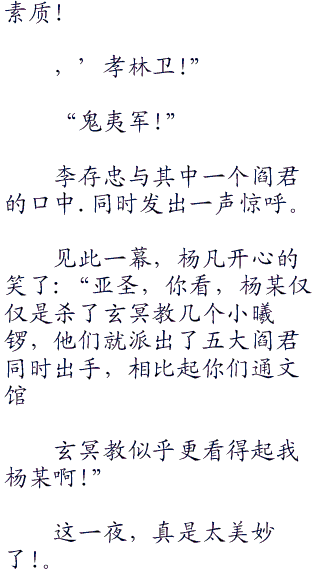 素质！
，’孝林卫！”
“鬼夷军！”
李存忠与其中一个阎君
的口中.同时发出一声惊呼。
见此一幕，杨凡开心的
笑了：“亚圣，你看，杨某仅
仅是杀了玄冥教几个小曦
锣，他们就派出了五大阎君
同时出手，相比起你们通文
馆
玄冥教似乎更看得起我
杨某啊！”
这一夜，真是太美妙
了！。